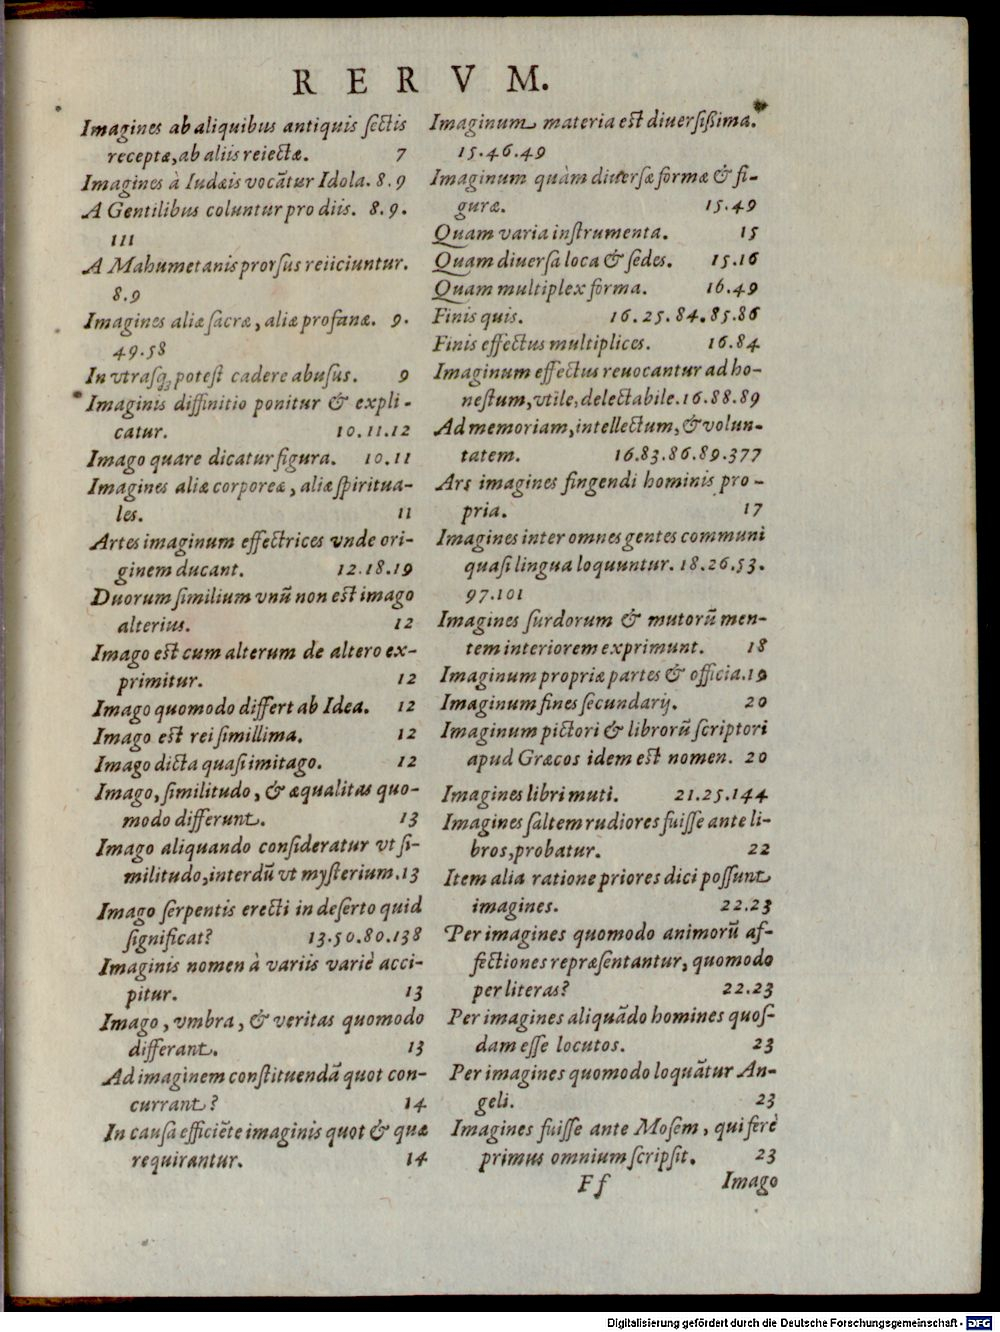 RERVM.
Imagines ab aliquibus antiquis sectis
receptæ, ab aliis reiectæ. 7
Imagines à Iudæis vocãtur Idola. 8.9
A Gentilibus coluntur pro diis. 8.9.
111
A Mahumetanis prorsus reiiciuntur.
8.9
Imagines aliæ sacræ, aliæ profanæ. 9.
49.58
In vtrasq; potest cadere abusus. 9
Imaginis diffinitio ponitur & expli-
catur. 10.11.12
Imago quare dicatur figura. 10.11
Imagines aliæ corporeæ, aliæ spiritua-
les. 11
Artes imaginum effectrices vnde ori-
ginem ducant. 12.18.19
Duorum similium vnũ non est imago
alterius. 12
Imago est cum alterum de altero ex-
primitur. 12
Imago quomodo differt ab Idea. 12
Imago est rei simillima. 12
Imago dicta quasi imitago. 12
Imago, similitudo, & æqualitas quo-
modo differunt. 13
Imago aliquando consideratur vt si-
militudo, interdũ vt mysterium. 13
Imago serpentis erecti in deserto quid
significat? 13.50.80.138
Imaginis nomen à variis variè acci-
pitur. 13
Imago, vmbra, & veritas quomodo
differant. 13
Ad imaginem constituendã quot con-
currant? 14
In causa efficiẽte imaginis quot & quæ
requirantur. 14
Imaginum materia est diuersißima.
15.46.49
Imaginum quàm diuersæ formæ & fi-
guræ. 15.49
Quam varia instrumenta. 15
Quam diuersa loca & sedes. 15.16
Quam multiplex forma. 16.49
Finis quis. 16.25.84.85.86
Finis effectus multiplices. 16.84
Imaginum effectus reuocantur ad ho-
nestum, vtile, delectabile. 16.88.89
Ad memoriam, intellectum, & volun-
tatem. 16.83.86.89.377
Ars imagines fingendi hominis pro-
pria. 17
Imagines inter omnes gentes communi
quasi lingua loquuntur. 18.26.53.
97.101
Imagines surdorum & mutorũ men-
tem interiorem exprimunt. 18
Imaginum propriæ partes & officia. 19
Imaginum fines secundarij. 20
Imaginum pictori & librorũ scriptori
apud Græcos idem est nomen. 20
Imagines libri muti. 21.25.144
Imagines saltem rudiores fuisse ante li-
bros, probatur. 22
Item alia ratione priores dici possunt
imagines. 22.23
Per imagines quomodo animorũ af-
fectiones repræsentantur, quomodo
per literas? 22.23
Per imagines aliquãdo homines quos-
dam esse locutos. 23
Per imagines quomodo loquãtur An-
geli. 23
Imagines fuisse ante Mosem, qui ferè
primus omnium scripsit. 23
Ff Imago
Digitalisierung gefördert durch die Deutsche Forschungsgemeinschaft - DFG